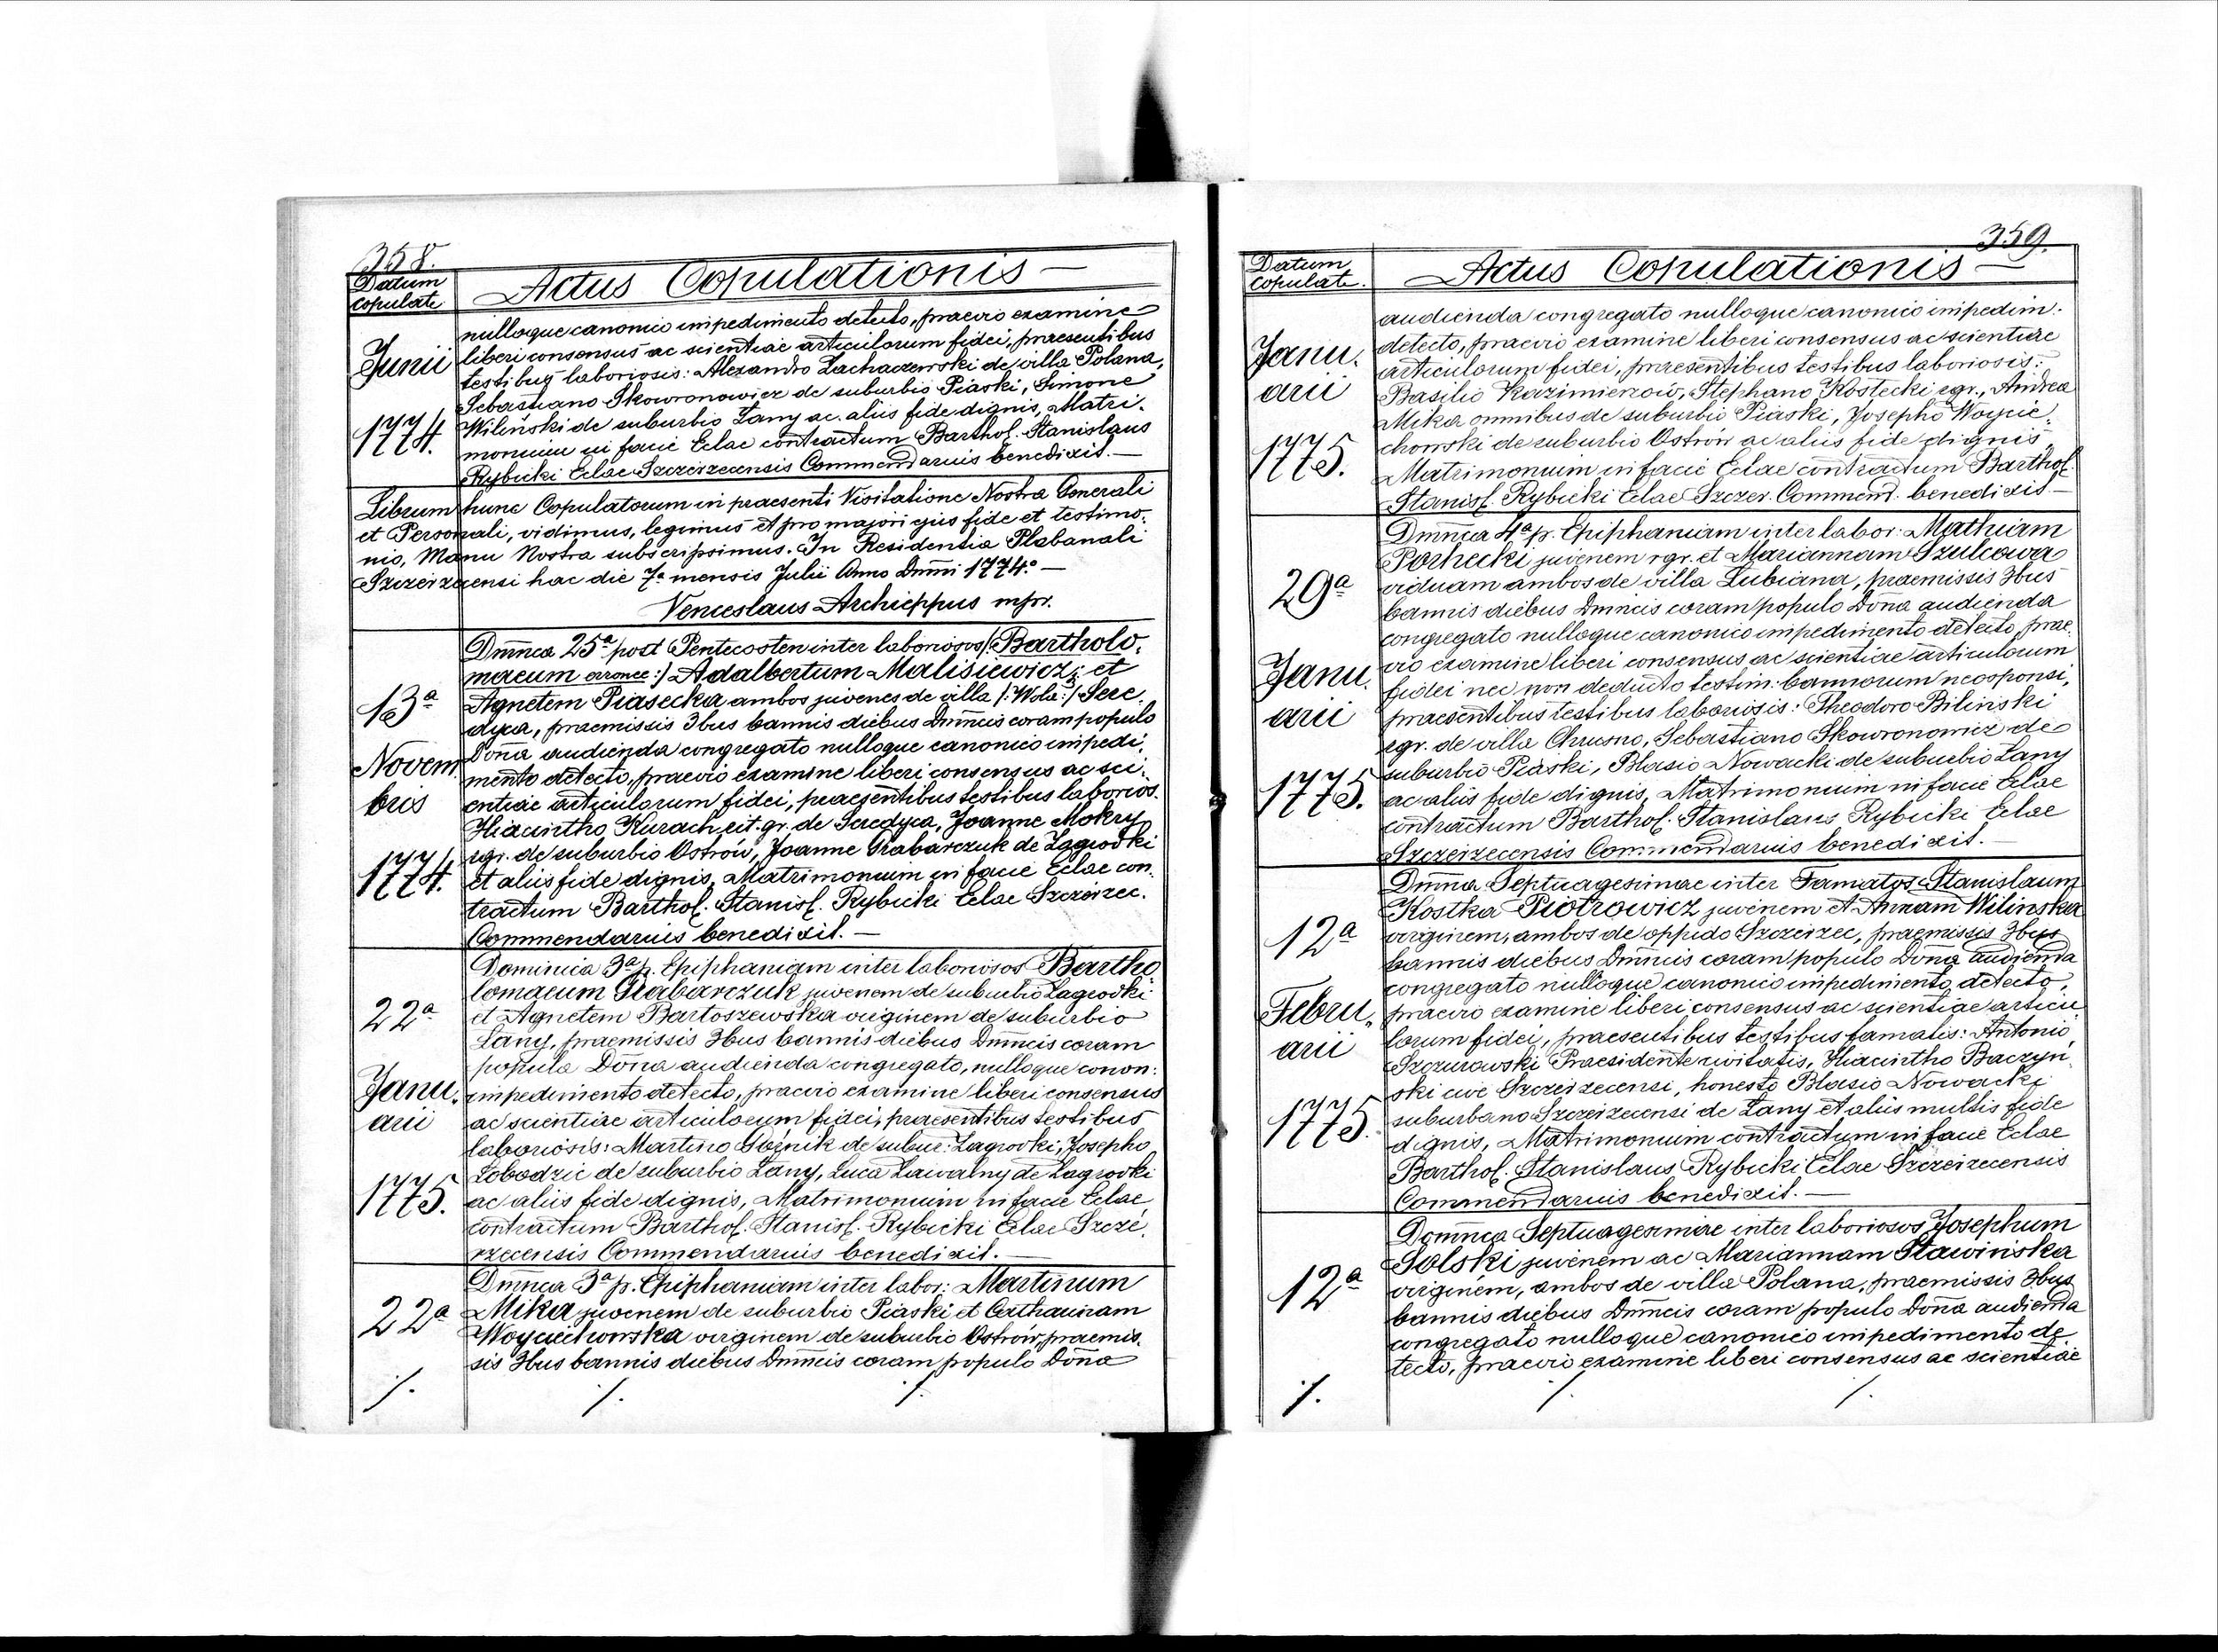 358.
Datum
copulate
Actus Copulationis —
Junii
1774.
nulloque canonico impedimento detecto, praevio examine
liberi consensus ac scientiae articulorum fidei, praesentibus
testibus laboriosis: Alexandro Lachaczewski de villa Polana,
Sebastiano Skowronowicz de suburbio Piaski, Simone
Wiliński de suburbio Łany ac aliis fide dignis, Matri-
monium in facie Eclae contractum Barthol. Stanislaus
Rybicki Eclae Szczerzecensis Commendarius benedixit. —
Librum hunc Copulatorum in praesenti Visitatione Nostra Generali
et Personali, vidimus, legimus et pro majori ejus fide et testimo-
nio, Manu Nostra subscripsimus. In Residentia Plebanali
Szczerzecensi hac die 7a mensis Julii Anno Dmni 1774o —
Venceslaus Archieppus mpr.
13a
Novem
bris
1774.
Dmnca 25a post Pentecosten inter laboriosos /:Bartholo-
maeum erronee:/ Adalbertum Malisiewicz et
Agnetem Piasecka ambos juvenes de villa /:Wola:/ Sere-
dyca, praemissis 3bus bannis diebus Dmncis coram populo
Dona audienda congregato nulloque canonico impedi-
mento detecto, praevio examine liberi consensus ac sci-
entiae articulorum fidei, praesentibus testibus laborios.
Hiacintho Kurach rit. gr. de Seredyca, Joanne Mokry
rgr. de suburbio Ostrów, Joanne Grabarczuk de Zagrodki
et aliis fide dignis, Matrimonium in facie Eclae con-
tractum Barthol. Stanisl. Rybicki Eclae Szczerzec.
Commendarius benedixit. —
22a
Janu-
arii
1775.
Dominica 3a p. Epiphaniam inter laboriosos Bartho
lomaeum Grabarczuk juvenem de suburbio Zagrodki
et Agnetem Bartoszewska virginem de suburbio
Łany, praemissis 3bus bannis diebus Dmncis coram
populo Dona audienda congregato, nulloque conon:
impedimento detecto, praevio examine liberi consensus
ac scientiae articulorum fidei, praesentibus testibus
laboriosis: Martino Goźnik de subur: Zagrodki, Josepho
Łobodzic de suburbio Łany, Luca Zawalny de Zagrodki
ac aliis fide dignis, Matrimonium in facie Eclae
contractum Barthol. Stanisl. Rybicki Eclae Szcze-
rzecensis Commendarius benedixit. —
22a
Dmnca 3a p. Epiphaniam inter labor: Martinum
Mika juvenem de suburbio Piaski et Catharinam
Woyciechowska virginem de suburbio Ostrów, praemis-
sis 3bus bannis diebus Dmncis coram populo Dona
/. /. /.
359.
Datum
copulate.
Actus Copulationis —
Janu-
arii
1775.
audienda congregato nulloque canonico impedim.
detecto, praevio examine liberi consensus ac scientiae
articulorum fidei, praesentibus testibus laboriosis:
Basilio Kazimierzów, Stephano Kostecki rgr., Andrea
Mika omnibus de suburbio Piaski, Josepho Woycie-
chowski de suburbio Ostrów ac aliis fide dignis,
Matrimonium in facie Eclae contractum Barthol.
Stanisl. Rybicki Eclae Szczer. Commend. benedixit —
29a
Janu-
arii
1775.
Dmnca 4a p. Epiphaniam inter labor: Mathiam
Porhecki juvenem rgr. et Mariannam Szulcowa
viduam ambos de villa Lubiana, praemissis 3bus
bannis diebus Dmncis coram populo Dona audienda
congregato nulloque canonico impedimento detecto, prae-
vio examine liberi consensus ac scientiae articulorum
fidei nec non deducto testim: bannorum neosponsi,
praesentibus testibus laboriosis: Theodoro Biliński
rgr. de villa Chrusno, Sebastiano Skowronowicz de
suburbio Piaski, Blasio Nowacki de suburbio Łany
ac aliis fide dignis, Matrimonium in facie Eclae
contractum Barthol. Stanislaus Rybicki Eclae
Szczerzecensis Commendarius benedixit. —
12a
Febru-
arii
1775.
Dmnca Septuagesimae inter Famatos Stanislaum
Kostka Piotrowicz juvenem et Annam Wilinska
virginem, ambos de oppido Szczerzec, praemissis 3bus
bannis diebus Dmncis coram populo Dona audienda
congregato nulloque canonico impedimento detecto,
praevio examine liberi consensus ac scientiae articu-
lorum fidei, praesentibus testibus famatis: Antonio
Szczurowski Praesidente civitatis, Hiacintho Baczyń-
ski cive Szczerzecensi, honesto Blasio Nowacki
suburbano Szczerzecensi de Łany et aliis multis fide
dignis, Matrimonium contractum in facie Eclae
Barthol. Stanislaus Rybicki Eclae Szczerzecensis
Commendarius benedixit. —
12a
Domnca Septuagesimae inter laboriosos Josephum
Solski juvenem ac Mariannam Stawinska
virginem, ambos de villa Polana, praemissis 3bus
bannis diebus Dmncis coram populo Dona audienda
congregato nulloque canonico impedimento de-
tecto, praevio examine liberi consensus ac scientiae
/. /. /.